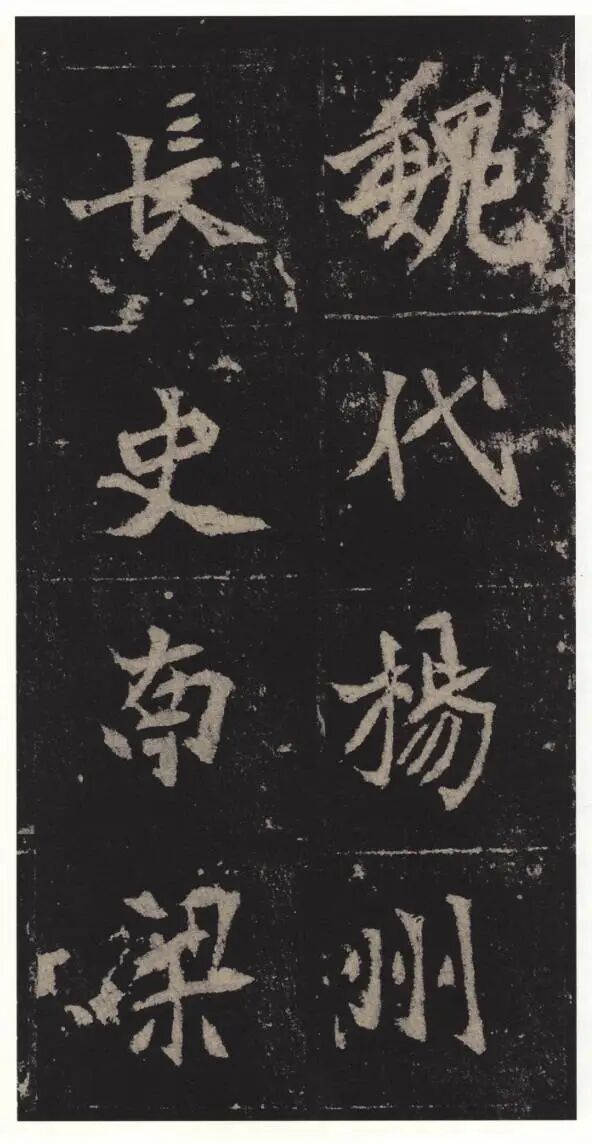 魏代楊州
長史南梁